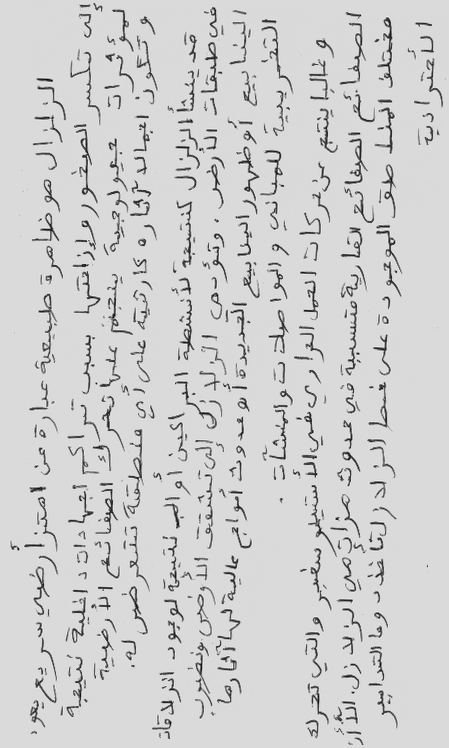 الزلزال هو ظاهرة طبيعية عبارة عن اهتزاز أرضي سريع يعود
إلى تكسر الصخور وإزاحتها بسبب تراكم اجهادات داخلية نتيجة
لمؤثرات جيولوجية ينجم عنها تحرك الصفائح الأرضية
وتكون اجمالا آثاره كارثية على أي منطقة تتعرض له.
قد ينشأ الزلزال كنتيجة لأنشطة البراكين أو نتيجة لوجود انزلاقات
في طبقات الأرض. وتؤدي الزلازل إلى تشقق الأرض ونضوب
الينابيع أو ظهور الينابيع الجديدة أو حدوث أمواج عالية لها آثارها
التخريبية للمباني والمواصلات والمنشآت.
وغالبا ينتج عن حركات الحمل الحراري في الأستينوسفير والتي تحرك
الصفائح الصفائح القارية متسببة في حدوث هزات هي الزلازل.
مختلف المناطق الموجودة على خط الزلازل تأخذ وما التدابير
الأحترازية